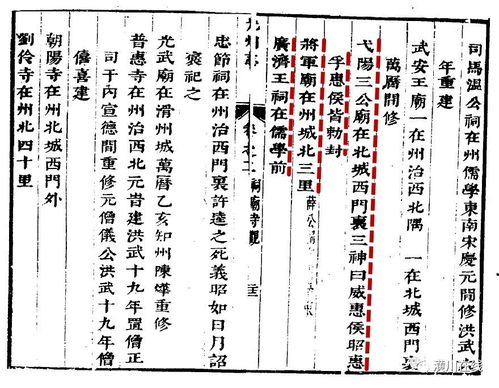 司馬溫公祠在州儒學東南宋慶元間修洪武
年重建
武安王廟一在州治西北隅 一在北城西門裏
萬曆間修
弋陽三公廟在北城西門裏三神曰威惠侯昭惠
孚惠侯皆勅封
將軍廟在州城北三里
廣濟王祠在儒學前
光州志 卷之二 祠廟寺觀
忠節祠在州治西門裏許逵之死義昭如日月詔
褒祀之
光武廟在滑州城萬曆乙亥知州陳燁重修
普惠寺在州治西北元肯建洪武十九年置僧正
司于內宣德間重修元僧儀公洪武十九年僧
僖喜建
朝陽寺在州北城西門外
劉伶寺在州北四十里
潢川在线